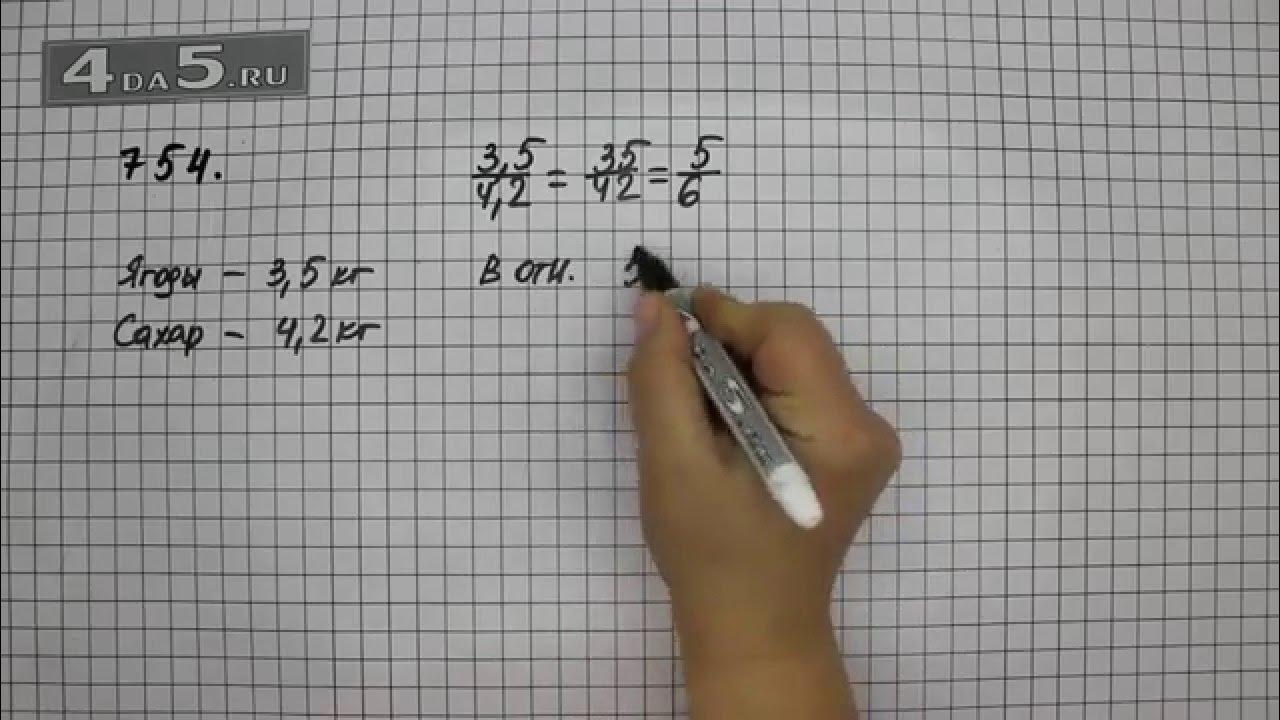 4DA5.RU
754.
3,5/4,2 = 35/42 = 5/6
Ягоды – 3,5 кг
Сахар – 4,2 кг
В отн. 5